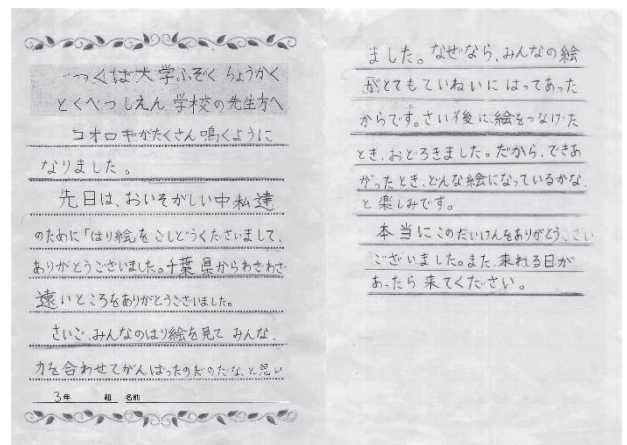 つくば大学ふぞく ちょうかく
とくべつしえん 学校の先生方へ
コオロギがたくさん鳴くように
なりました。
先日は、おいそがしい中私達
のために「はり絵」を ごしどうくださいまして、
ありがとうございました。千葉県からわざわざ
遠いところをありがとうございました。
さいご、みんなのはり絵を見て みんな、
力を合わせてがんばったのだのだな、と思い
3年 組 名前
ました。なぜなら、みんなの絵
がとてもていねいに はってあった
からです。さい後に絵をつなげた
とき、おどろきました。だから、できあ
がったとき、どんな絵になっているかな、
と楽しみです。
本当にこのたいけんをありがとう、
ございました。また、来れる日が
あったら 来てください。